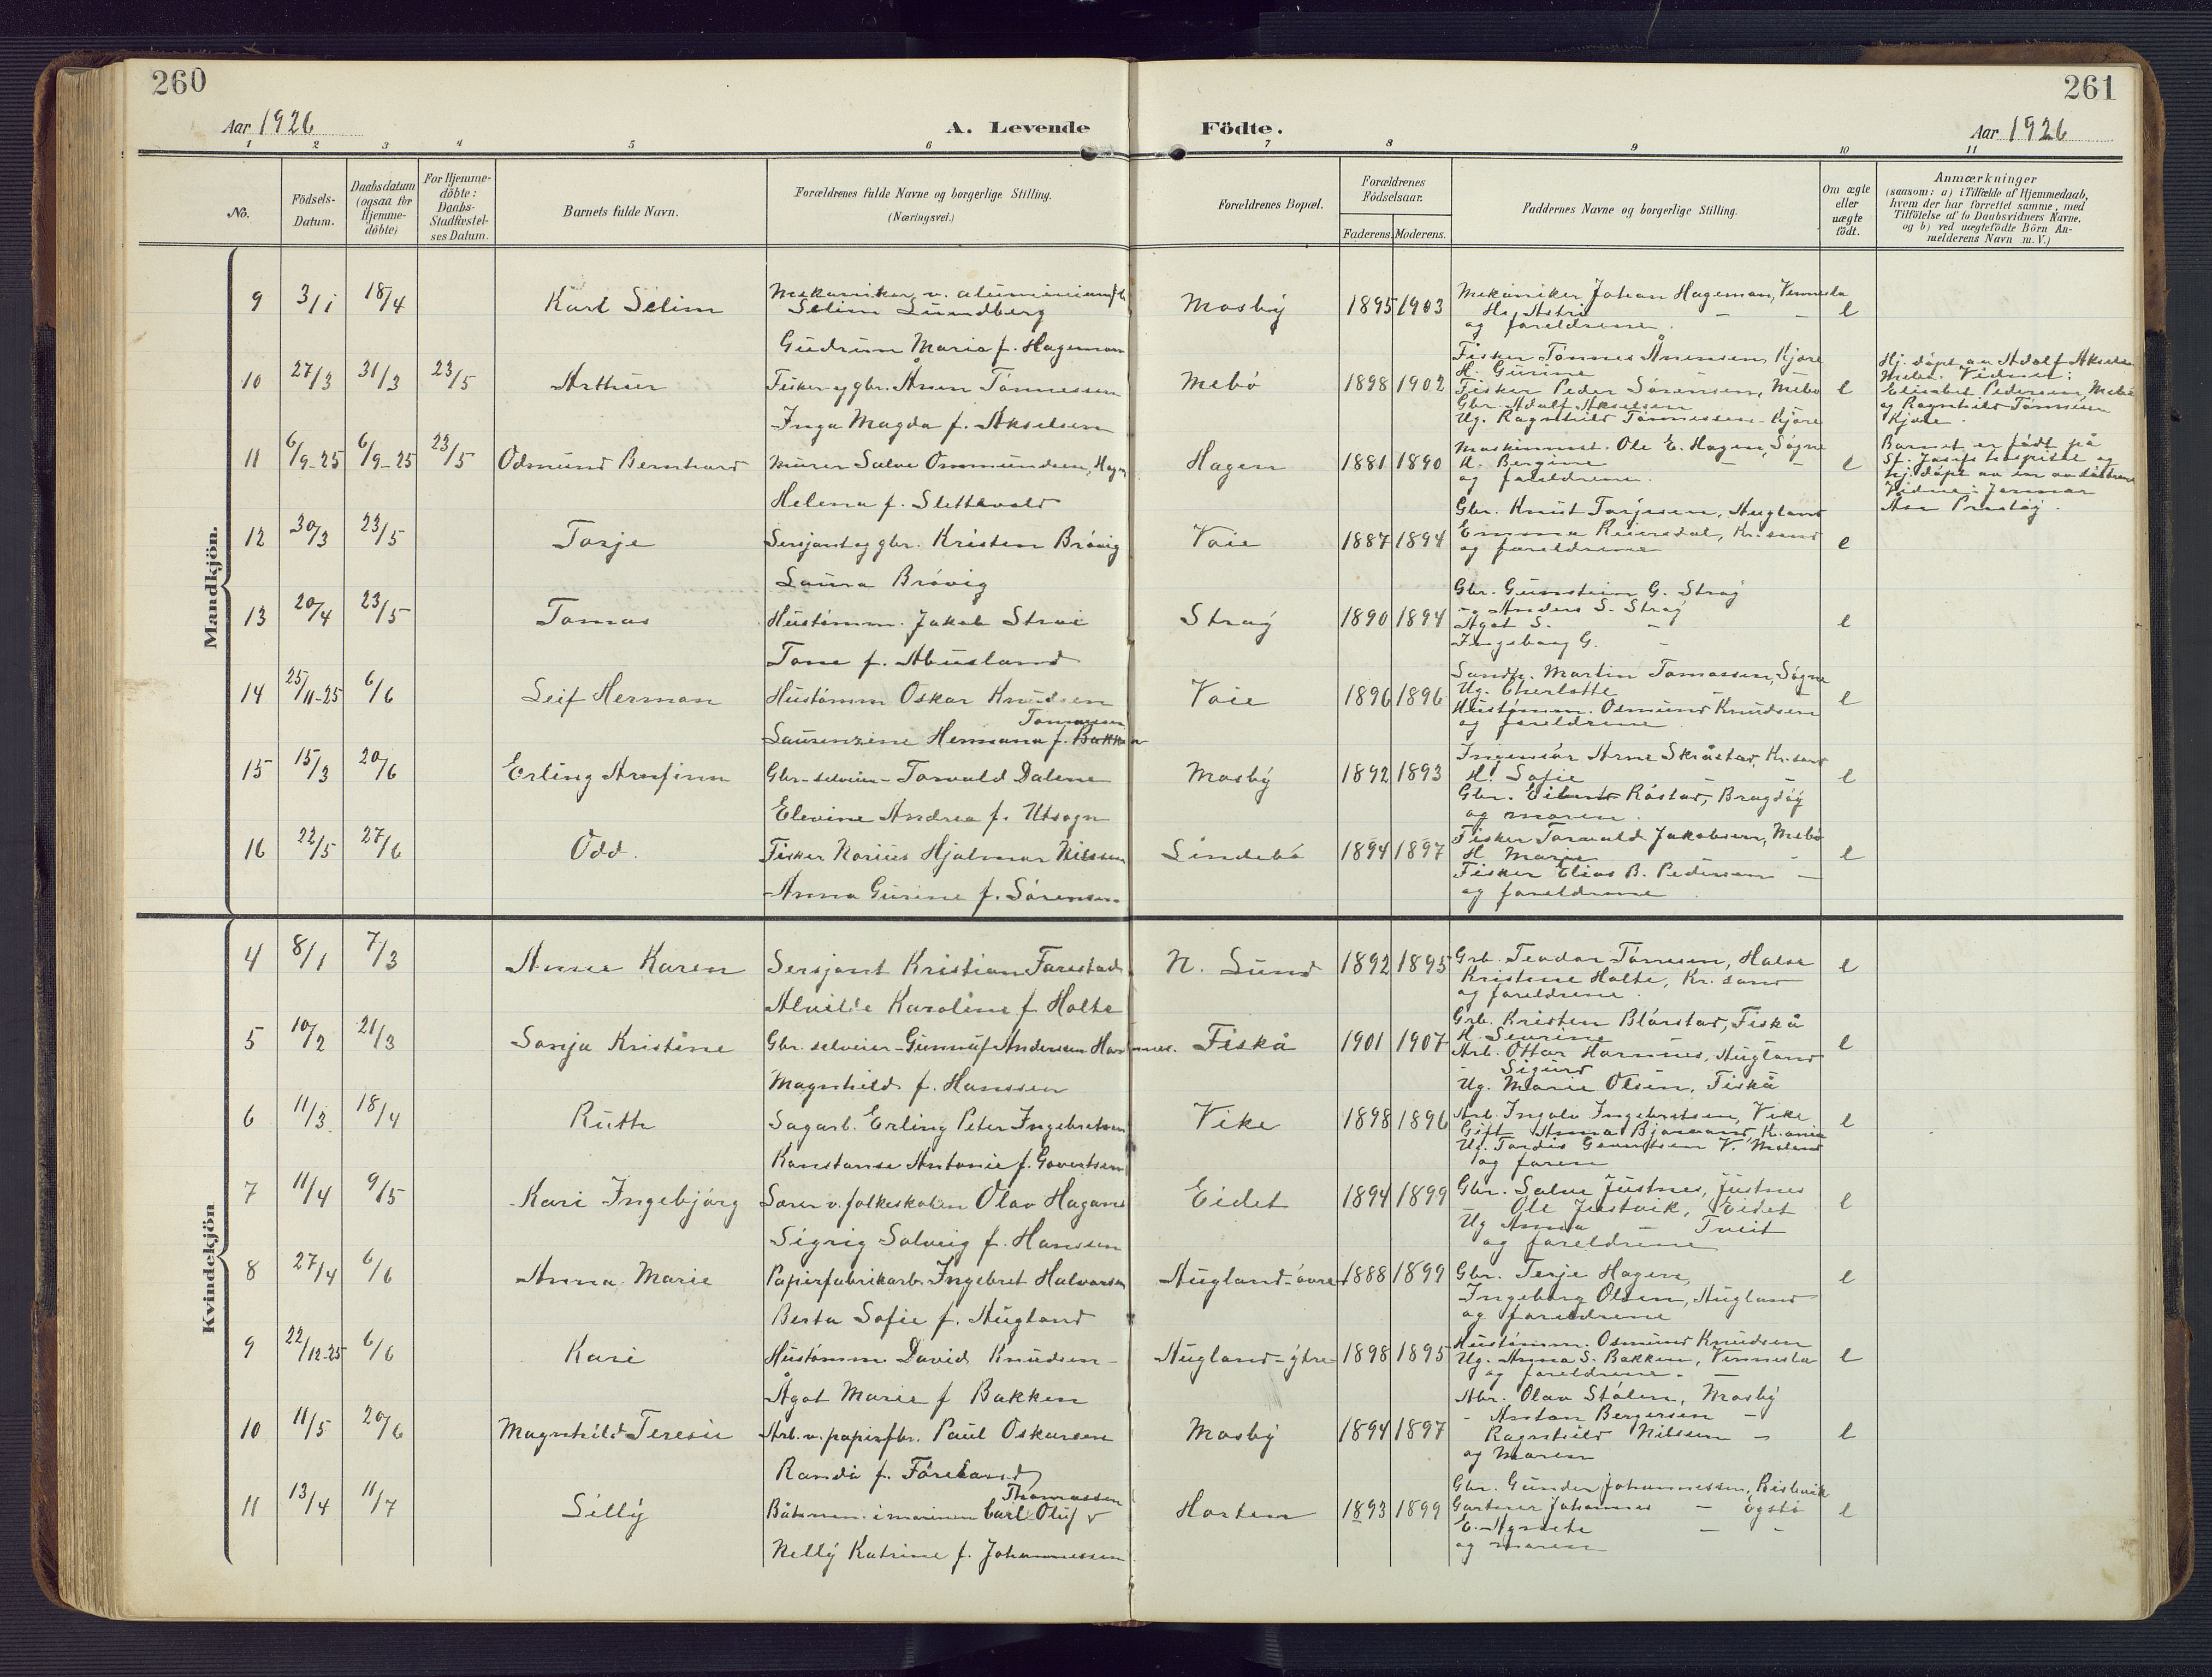 260
Aar 1926
A. Levende
1 2 3 4 5 6
No.
Fødsels-Datum.
Daabsdatum (ogsaa for Hjemme-døbte)
For Hjemme-døbte: Daabs-Stadfæstel-ses Datum.
Barnets fulde Navn.
Forældrenes fulde Navne og borgerlige Stilling.
(Næringsvei.)
261
Födte.
Aar 1926
7 8 9 10 11
Forældrenes Bopæl.
Forældrenes Fødselsaar.
Faderens. Moderens.
Faddernes Navne og borgerlige Stilling.
Om ægte eller uægte født.
Anmærkninger
(saasom: a) i Tilfælde af Hjemmedaab,
hvem der har forrettet samme, med
Tilføielse af to Daabsvidners Navne,
og b) ved uægtefødte Börn An-
melderens Navn m. V.)
Mandkjön.
9 3/1 18/4 Karl Selim
Mekaniker v. aluminiumfb.
Selim Lundberg
Gudrun Marie f. Hageman
Mosby 1895 1903
Mekaniker Johan Hageman, Vennesla
H. Astri - -
og foreldrene.
e
10 27/3 31/3 23/5 Arthur
Fisker og gbr. Ånen Tønnessen
Inga Magda f. Akselsen
Mebø 1898 1902
Fisker Tønnes Ånensen, Kjøre
H. Gurine
Fisker Peder Sørensen, Mebø
Gbr. Adolf Akselsen
Ug. Ragnhild Tønnessen - Kjøre
e
Hj. døpt av Adolf Akselsen
Mebø. Vidner:
Elisabet Pedersen, Mebø
og Ragnhild Tønnesen
Kjøre.
11 6/9-25 6/9-25 23/5 Odmund Bernhard
Murer Salve Ommundsen, Hagen
Helena f. Slettevold
Hagen 1881 1890
Maskinmst. Ole E. Hagen, Søgne
H. Bergine - -
og foreldrene.
e
Barnet er født på
St. Josefs hospital og
hj. døpt av en av søstrene
Vidne: Jormor
Åse Prestøy.
12 30/3 23/5 Torje
Sersjant og gbr. Kristen Brøvig
Laura Brøvig
Voie 1887 1894
Gbr. Knut Torjesen, Augland
Emma Reiersdal, Kr.sand
og foreldrene
e
13 20/4 23/5 Tomas
Hustømm. Jakob Strai
Tone f. Abusland
Stray 1890 1894
Gbr. Gunstein G. Stray
-" Anders S. Stray
Agot S. -
Ingeborg G. -
e
14 25/11-25 6/6 Leif Herman
Hustømm Oskar Knudsen
Tomassen
Laurenzine Hermana f. Bakken
Voie 1896 1896
Sandh. Martin Tomassen, Søgne
Ug. Cherlotte
Hustømm. Odmund Knudsen
og foreldrene
e
15 15/3 20/6 Erling Arnfinn
Gbr-selveier-Torvald Dalene
Elevine Andrea f. Utsogn
Mosby 1892 1893
Ingeniør Arne Skråstad, Kr.sand
H. Sofie -
Gbr. Eilert Råstad, Bragdøy
og moren.
e
16 22/5 27/6 Odd.
Fisker Norius Hjalmar Nilssen
Anna Gurine f. Sørensen
Lindebø 1894 1897
Fisker Torvald Jakobsen, Mebø
H. Marie -
Fisker Elias B. Pedersen -
og foreldrene
e
Kvindekjön
4 8/1 7/3 Anne Karen
Sersjant Kristian Farestad
Alvilde Karoline f. Holte
N. Lund 1892 1895
Grb. Teodor Tønnesen, Halse
Kristine Holte, Kr.sand
og foreldrene.
e
5 10/2 21/3 Sonja Kristine
Gbr. selveier-Gunnuf Andersen Hamnes.
Magnhild f. Hanssen
Fiskå 1901 1907
Grb. Kristen Blørstad, Fiskå
H. Severine
Arb. Ottar Hamnes, Augland
- Sigurd
Ug. Marie Olsen, Fiskå
e
6 11/3 18/4 Ruth
Sagarb. Erling Peter Ingebretsen
Konstanse Antonie f. Govertsen
Vike 1898 1896
Arb. Ingolv Ingebretsen, Vike
Gift Anna Bjorvand, Kr.ania
Ug. Tordis Govertsen V. Moland
og faren
e
7 11/4 9/5 Kari Ingebjørg
Lærer v. folkeskolen Olav Hagane
Sigrig Solveig f. Hansen
Eidet 1894 1899
Gbr. Salve Justnes, Justnes
- Ole Justvik, Eidet
Ug Anna - Tveit
og foreldrene
e
8 27/4 6/6 Anna Marie
Papirfabrikarb. Ingebret Halvorsen
Berta Sofie f. Augland
Augland-øvre 1888 1899
Gbr. Terje Hagen,
Ingeborg Olsen, Augland
og foreldrene
e
9 22/12-25 6/6 Kari
Hustømm. David Knudsen -
Ågot Marie f Bakken
Augland-ytre 1898 1895
Hustømm. Odmund Knudsen
Ug. Anna S. Bakken, Vennesla
og foreldrene. -
e
10 11/5 20/6 Magnhild Teresie
Arb. v. papirfbr. Paul Oskarsen
Randi f. Føreland
Mosby 1894 1897
Abr. Olav Stålen, Mosby
- Anton Bergersen -
Ragnhild Nilssen -
og Moren
e
11 13/4 11/7 Silly
Thomassen
Båtsmm. i marinen Carl Oluf v
Nelly Katrine f. Johannessen
Horten 1893 1899
Gbr. Gunder Johannessen, Risløvik
Gartner Johannes - Øgstø
E. Agnete - -
og moren
e